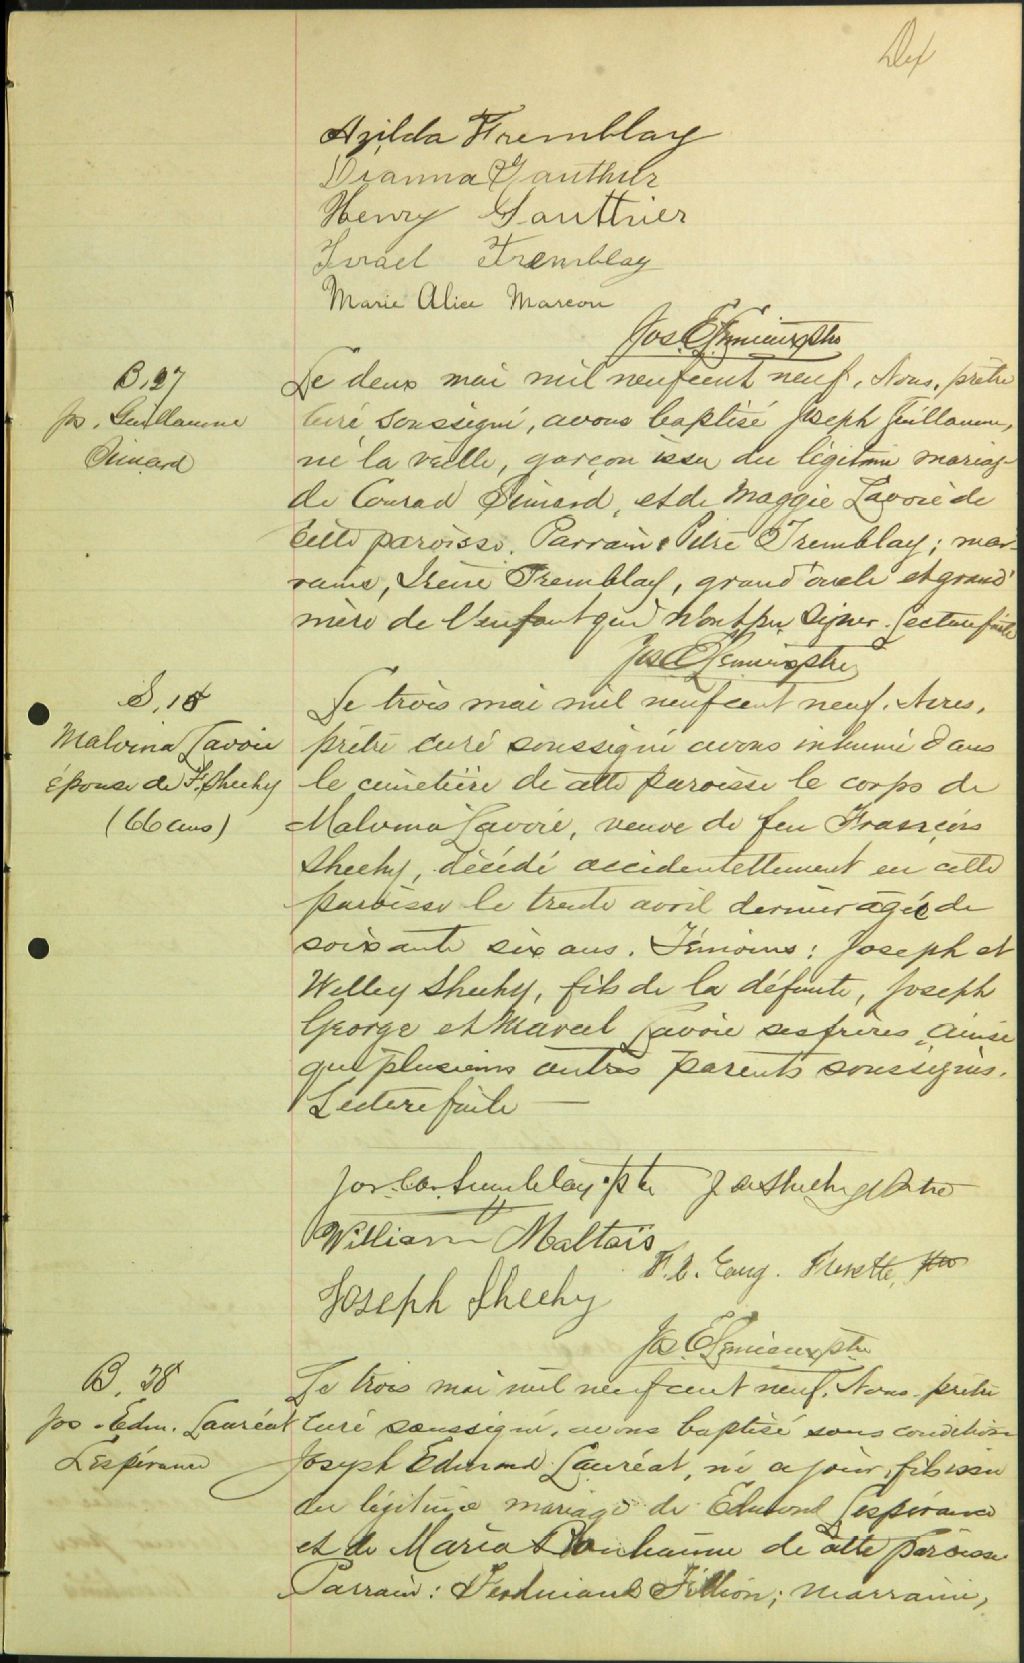 Azilda Tremblay
Dianna Gauthier
Henry Gauthier
Israel Tremblay
Marie Alice Marcou
Jos E Lemieux ptre
B. 27
Js. Guillaume
Simard
Le deux mai mil neuf cent neuf, Nous, prêtre
curé soussigné, avons baptisé Joseph Guillaume,
né la veille, garçon issu du légitime mariage
de Conrad Simard, et de Maggie Lavoie de
cette paroisse. Parrain Pitre Tremblay; mar-
raine, Irène Tremblay, grand'oncle et grand'
mère de l'enfant qui n'ont pu signer. Lecture faite
Jos E Lemieux ptre
S. 18
Malvina Lavoie
épouse de F. Sheehy
(66 ans)
Le trois mai mil neuf cent neuf, Nous,
prêtre curé soussigné avons inhumé dans
le cimetière de cette paroisse le corps de
Malvina Lavoie, veuve de feu François
Sheehy, décédé accidentellement en cette
paroisse le trente avril dernier âgée de
soixante six ans. Témoins: Joseph et
Willey Sheehy, fils de la défunte, Joseph
George et Marcel Lavoie ses frères ainsi
que plusieurs autres parents soussignés.
Lecture faite —
Jos. Tremblay ptre
J Sheehy ptre
William Maltais
F. Eug. Frenette, ptre
Joseph Sheehy
Jos E Lemieux ptre
B. 28
Jos. Edm. Lauréat
Lespérance
Le trois mai mil neuf cent neuf, Nous prêtre
curé soussigné, avons baptisé sous condition
Joseph Edmond Lauréat, né ce jour, fils issu
du légitime mariage de Edmond Lespérance
et de Maria Bonhomme de cette paroisse
Parrain: Ferdinand Fillion; marraine,